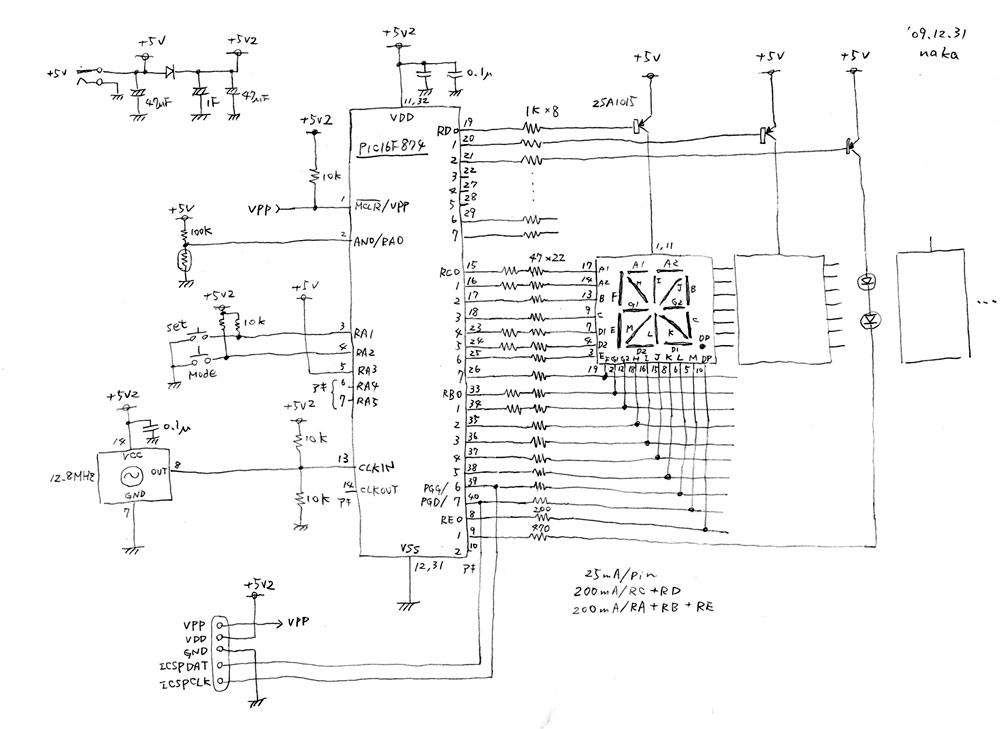 '09.12.31
naka
+5V
+5V2
+5V
47μF
1F
47μF
+5V2
0.1μ
11,32
VDD
PIC16F874
+5V2
10K
VPP
1
MCLR/VPP
+5V
100K
2
AN0/RA0
+5V2
10K
+5V
set
MODE
3
RA1
4
RA2
5
RA3
アキ
6
RA4
7
RA5
+5V2
0.1μ
14
VCC
OUT
8
12.8MHz
GND
7
+5V2
10K
13
CLKIN
10K
14
CLKOUT
アキ
VSS
12,31
RD0
19
1
20
2
21
3
22
4
27
5
28
6
29
7
1K×8
2SA1015
+5V
+5V
+5V
RC0
15
1
16
2
17
3
18
4
23
5
24
6
25
7
26
47×22
RB0
33
1
34
2
35
3
36
4
37
5
38
PGC/6
39
PGD/7
40
RE0
8
1
9
2
10
アキ
200
470
1,11
17
A1
14
A2
13
B
9
C
7
D1
4
D2
3
E
A1
A2
F
H
I
J
B
G1
G2
E
M
L
K
C
D2
D1
DP
F
G1
G2
H
I
J
K
L
M
DP
19
2
12
18
16
15
8
6
5
10
25mA/pin
200mA/RC+RD
200mA/RA+RB+RE
+5V2
VPP
VPP
VDD
GND
ICSPDAT
ICSPCLK